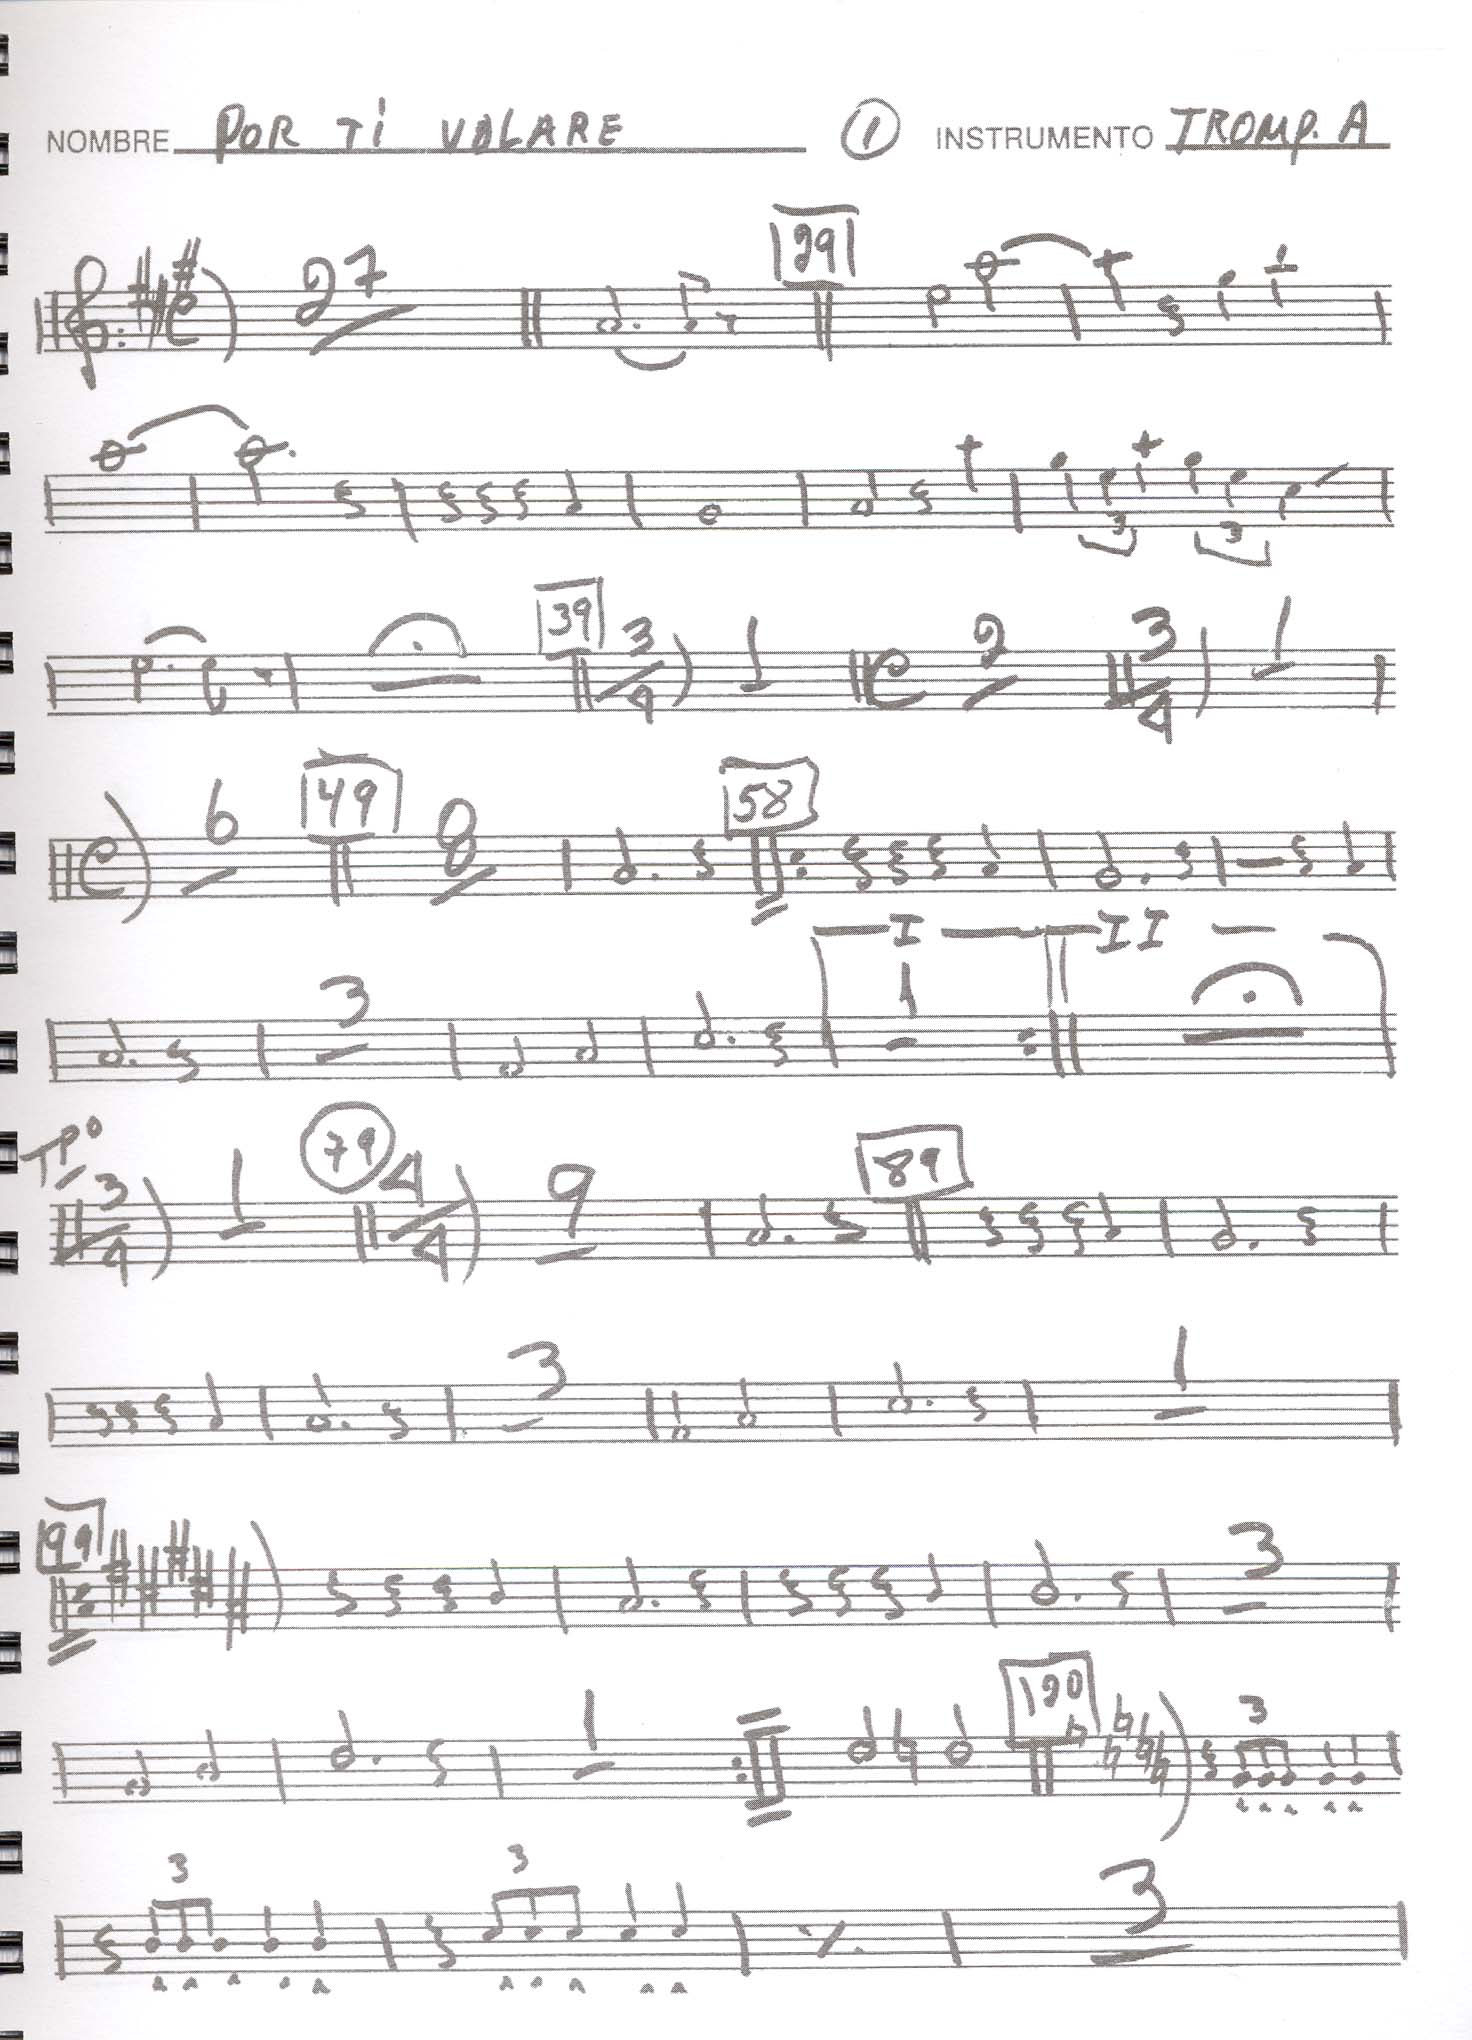 NOMBRE POR TI VOLARE 1 INSTRUMENTO TROMP. A
27 29
3 3
39 3/4 1 2 3/4 1
6 49 8 58
I II
3 1
Tpo 3/4 1 79 4/4 9 89
3 1
99 3
1 120 3
3 3 3